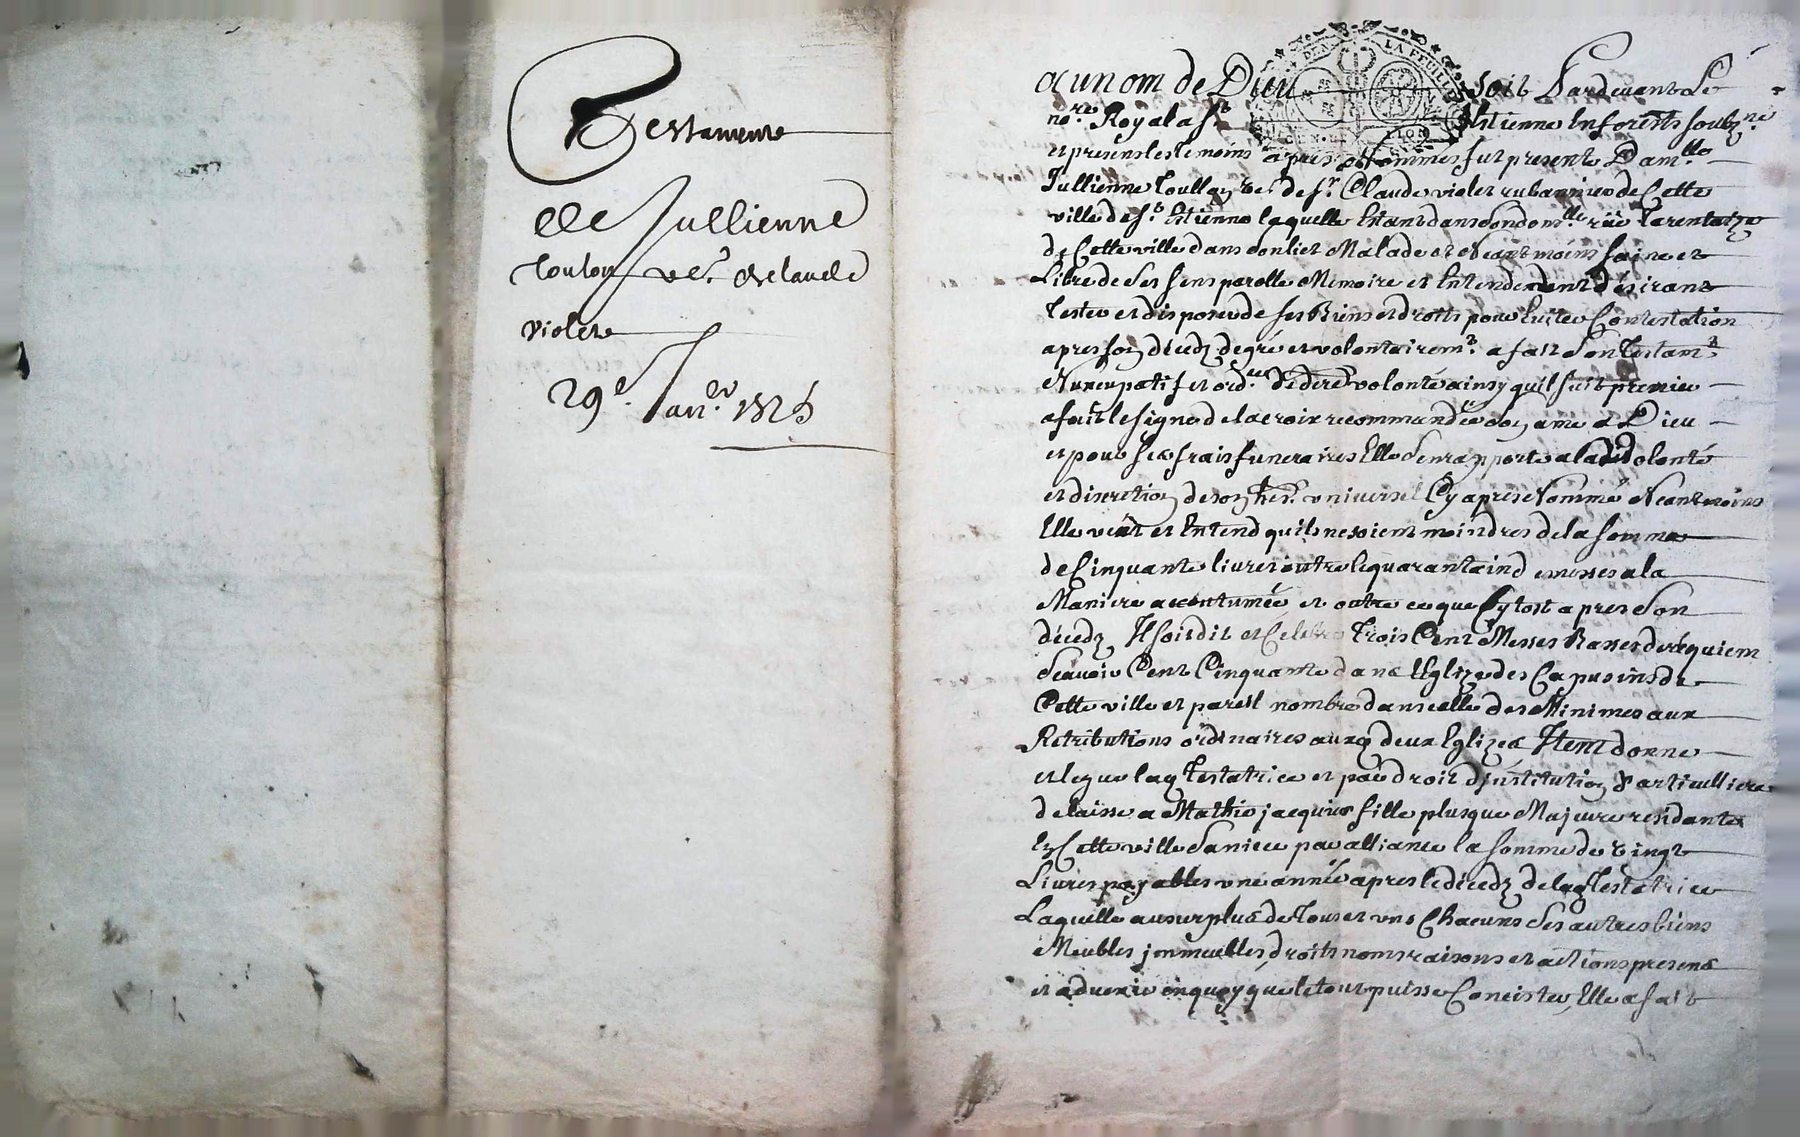 Testament
De Jullienne
Toulon ve.e de claude
violet
29e. Janer. 1725
Au nom de Dieu Soit Pardevant Le
nore. Royal a St Estienne En forests soubzne
et presens les temoins apres Nommes fut presente Damlle
Jullienne Toullon ve. de Sr. Claude violet rubannier de Cette
ville de St Estienne laquelle Estant dans son domlle rüe Tarentaize
de Cette ville dans son liet Malade et Neantmoins saine et
Libre de Ses Sens parolle Memoire et Entendement désirant
Tester et disposer de Ses Biens et droits pour Eviter Contestation
apres son décedz de gré et volontairemt. a fait Son Testamt
Nuncupatif et ordce de dere volonté ainsy quil suit premier
a fait le signe de la croix recommandée son ame a Dieu
et pour ses frais funeraires Elle Senrapporte a la volonté
et discretion de son her. universel Cy apres Nommé Neantmoins
Elle veut et Entend quils ne soient moindres de la somme
de Cinquante livres outre le quarantain de messes a la
Maniere accoutumée et outre ce que Sytost apres Son
décedz Il soit dit et Celebré Trois Cent Messes Basses de réquiem
Scavoir Cent Cinquante dans lEglize des Capucins de
Cette ville et pareil nombre dans celle des Minimes aux
Retributions ordinaires auxd deux Eglizes Item donne
et legue lad Testatrice et par droit d'institution Particulliere
delaisse a Mathie jacquier fille plus que Majeure residante
En Cette ville Sa niece par alliance la Somme de vingt
Livres payables une année apres le décedz de lad Testatrice
Laquelle au surplus de Tous et uns Chacuns Ses autres biens
Meubles jmmeubles droits noms raisons et actions presens
et advenir en quoy que le tout puisse Concister, Elle a fait